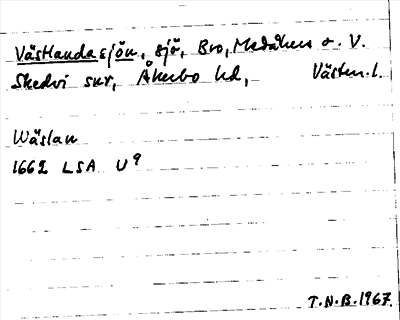 Västlandasjön, sjö, Bro, Medåkers o. V.
Skedvi snr, Åkerbo hd, Västm.l.
Wäslan
1662 LSA U9
T.N.B.1967.